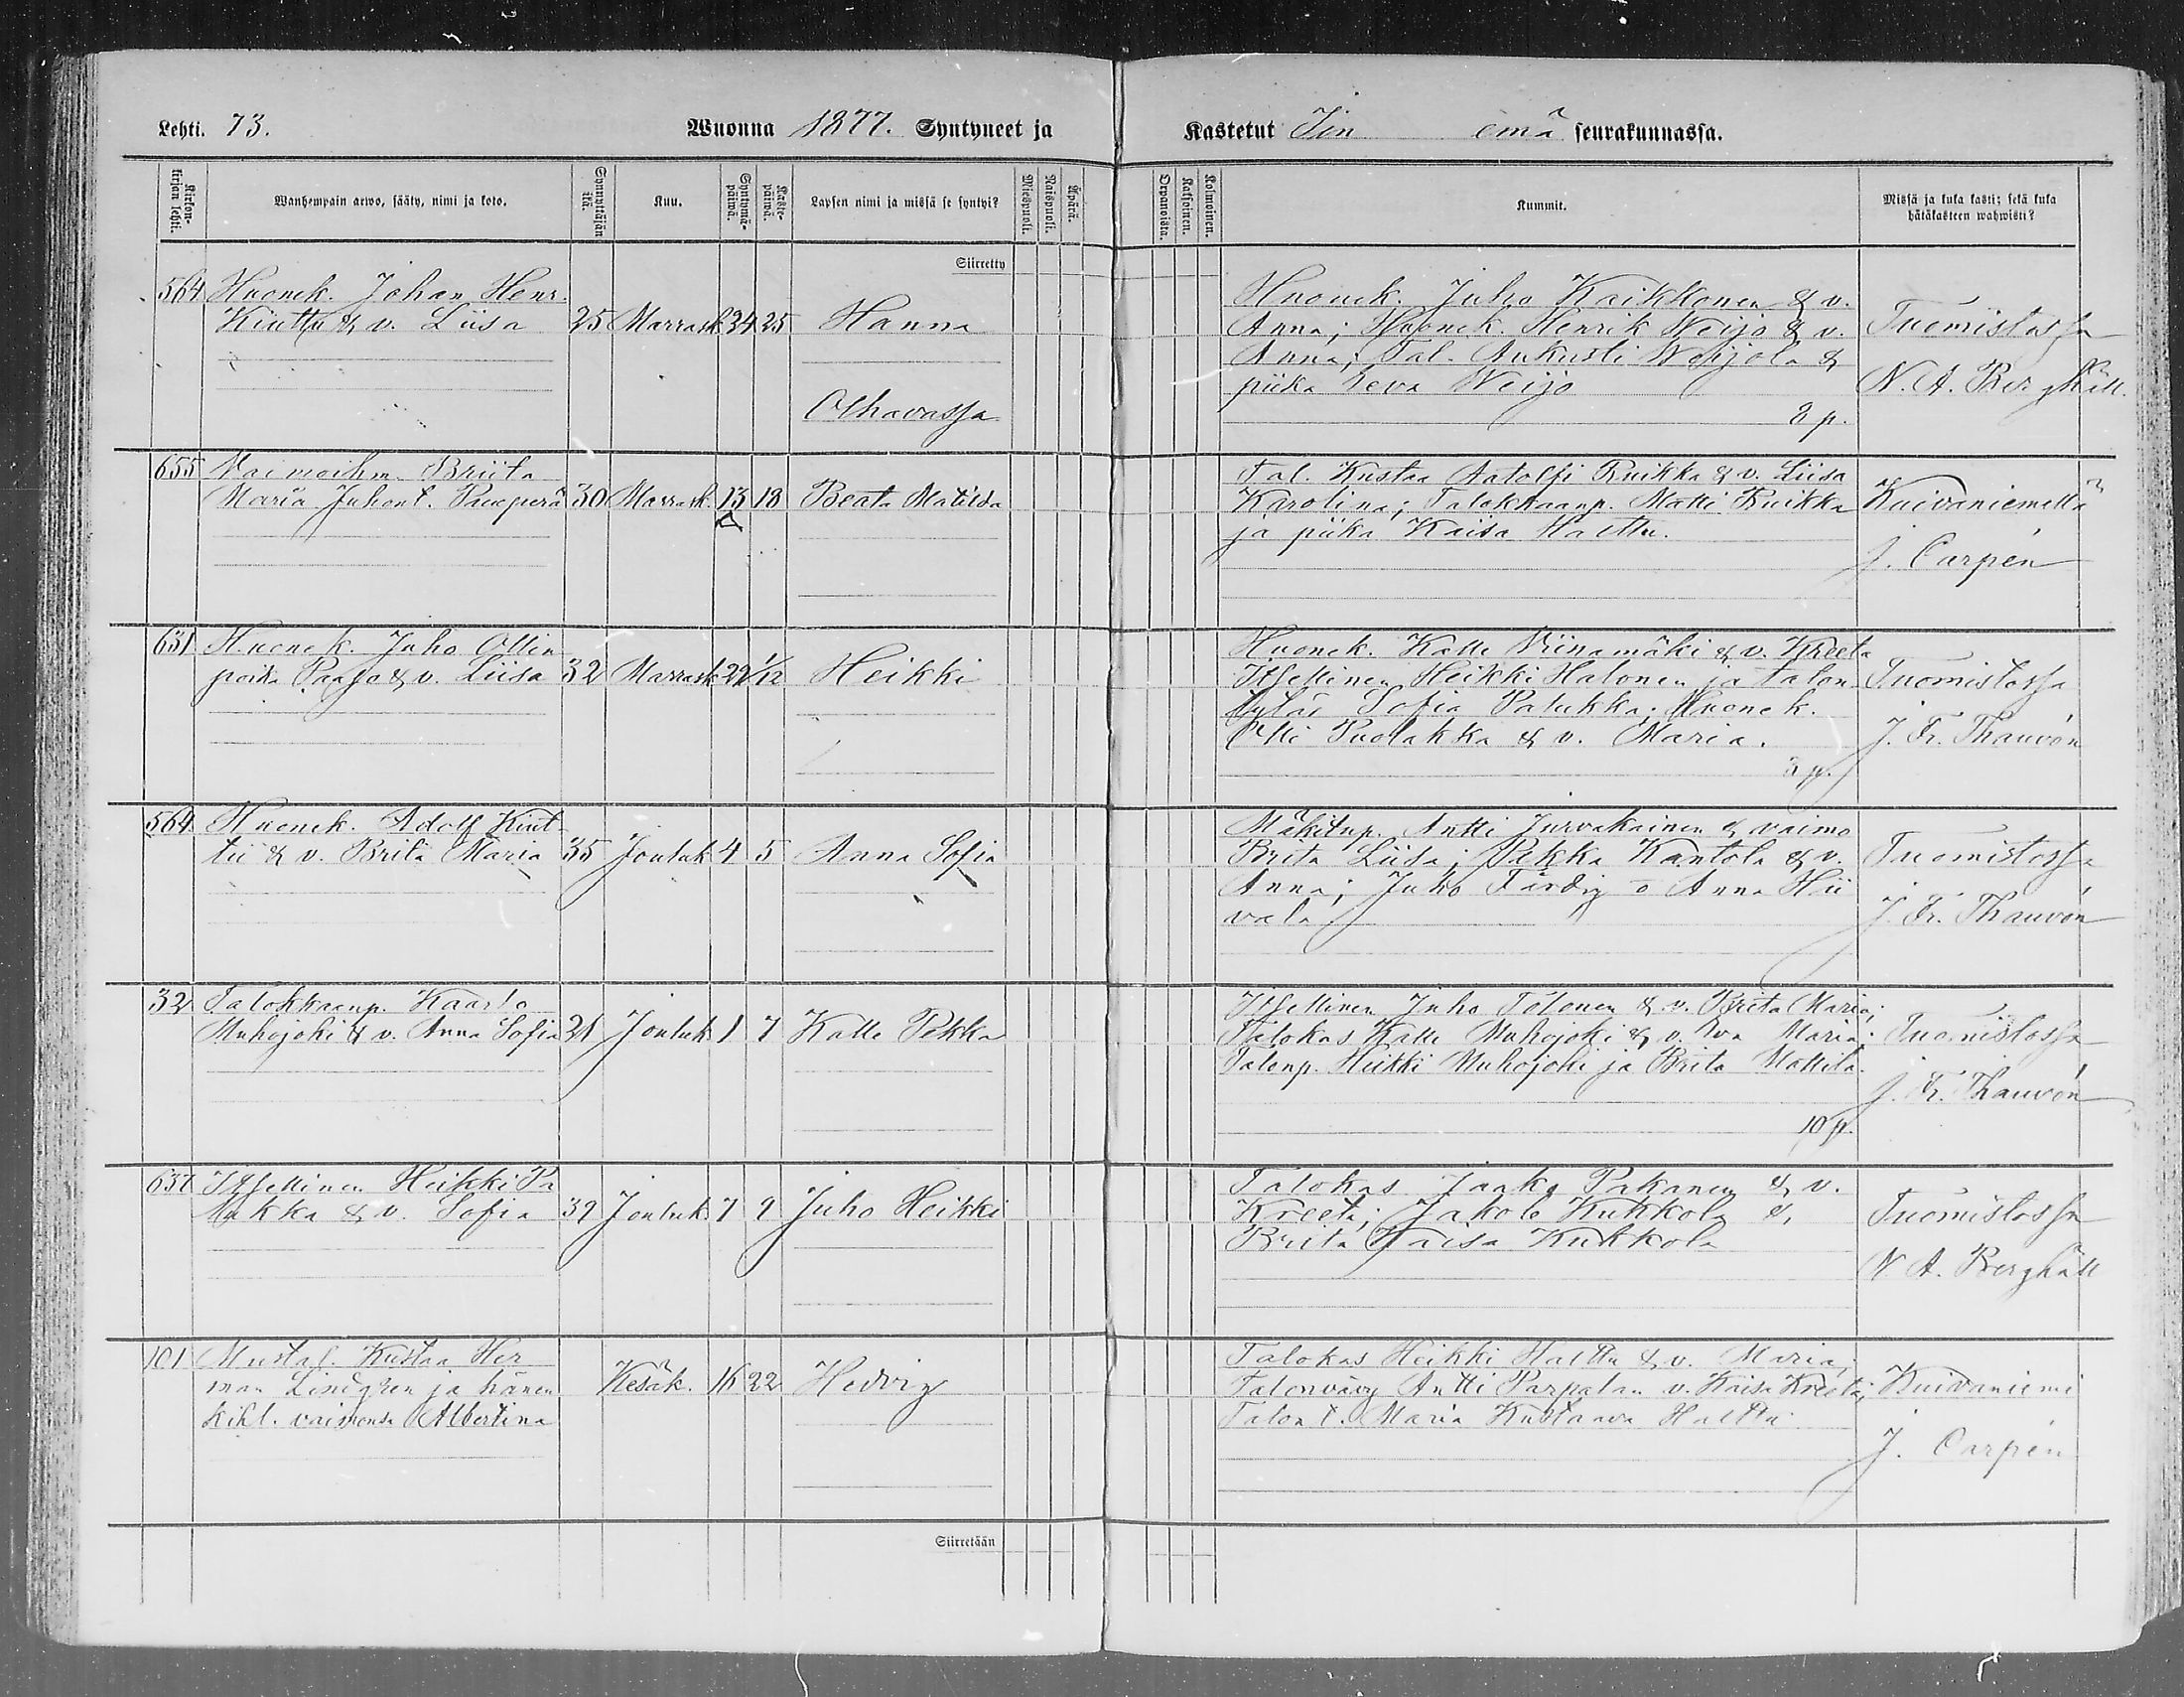 Lehti. 73.
Wuonna 1877. Syntyneet ja
Kastetut Iin emä seurakunnassa.
Kirkon-kirjan lehti.
Wanhempain arwo, sääty, nimi ja koto.
Synnyttäjän ikä.
Kuu.
Syntymä-päiwä.
Kaste-päiwä.
Lapsen nimi ja missä se syntyi?
Miespuoli.
Naispuoli.
Äpärä.
Orpanoista.
Kaksoinen.
Kolmoinen.
Kummit.
Missä ja kuka kasti; sekä kuka
hätäkasteen wahwisti?
Siirretty
564 Huonek. Johan Henr.
Kiuttu & v. Liisa 25 Marrask. 24 25 Hanna
Olhavassa
Huonek. Juho Kaikkonen & v.
Anna; Huonek. Henrik Weijo & v.
Anna; Tal. Aukusti Weijola &
piika Eeva Weijo
8 p.
Tuomistossa
N. A. Berghäll.
655 Vaimoihm. Briita
Maria Juhont. Paaperä 30 Marrask. 13 18 Beata Matilda
Tal. Kustaa Aatolfi Ruikka & v. Liisa
Karolina; Talokkaanp. Matti Ruikka
ja piika Kaisa Hattu.
Kuivaniemellä
J. Carpén
631 Huonek. Juho Ollin
poika Paaso & v. Liisa 32 Marrask 22 1/12 Heikki
Huonek. Kalle Niinamäki & v. Kreeta
Itsellinen Heikki Halonen ja talon
Sofia Palukka; Huonek.
Olli Puolakka & v. Maria.
3 p.
Tuomistossa
J. Fr. Thauvón
564 Huonek. Adolf Kiut-
tu & v. Brita Maria 35 Jouluk 4 5 Anna Sofia
Mäkitup. Antti Jurvakainen & vaimo
Brita Liisa; Pekka Kantola & v.
Anna; Juho Färdig o Anna Hii
vala
Tuomistossa
J. Fr. Thauvón
32 Talokkaanp. Kaarlo
Muhojoki & v. Anna Sofia 21 Jouluk 1 7 Kalle Pekka
Itsellinen Juho Tolonen & v. Brita Maria;
Talokas Kalle Muhojoki & v. Eva Maria;
Talonp. Heikki Muhojoki ja Brita Mattila.
10 p.
Tuomistossa
J. Fr. Thauvón
637 Itsellinen Heikki Pa
lukka & v. Sofia 39 Jouluk. 7 9 Juho Heikki
Talokas Jaako Pakanen & v.
Kreeta; Jakob Kukkola &
Brita Kaisa Kukkola
Tuomistossa
N A. Berghäll
101 Mustal. Kustaa Her
man Lindgren ja hänen
kihl. vaimonsa Albertina
Kesäk. 16 22 Hedvig
Talokas Heikki Hattu & v. Maria;
Talonvävy Antti Parpalan v. Kaisa Kreeta;
Talon t. Maria Kustaava Hattu
Kuivaniemi
J. Carpén
Siirretään